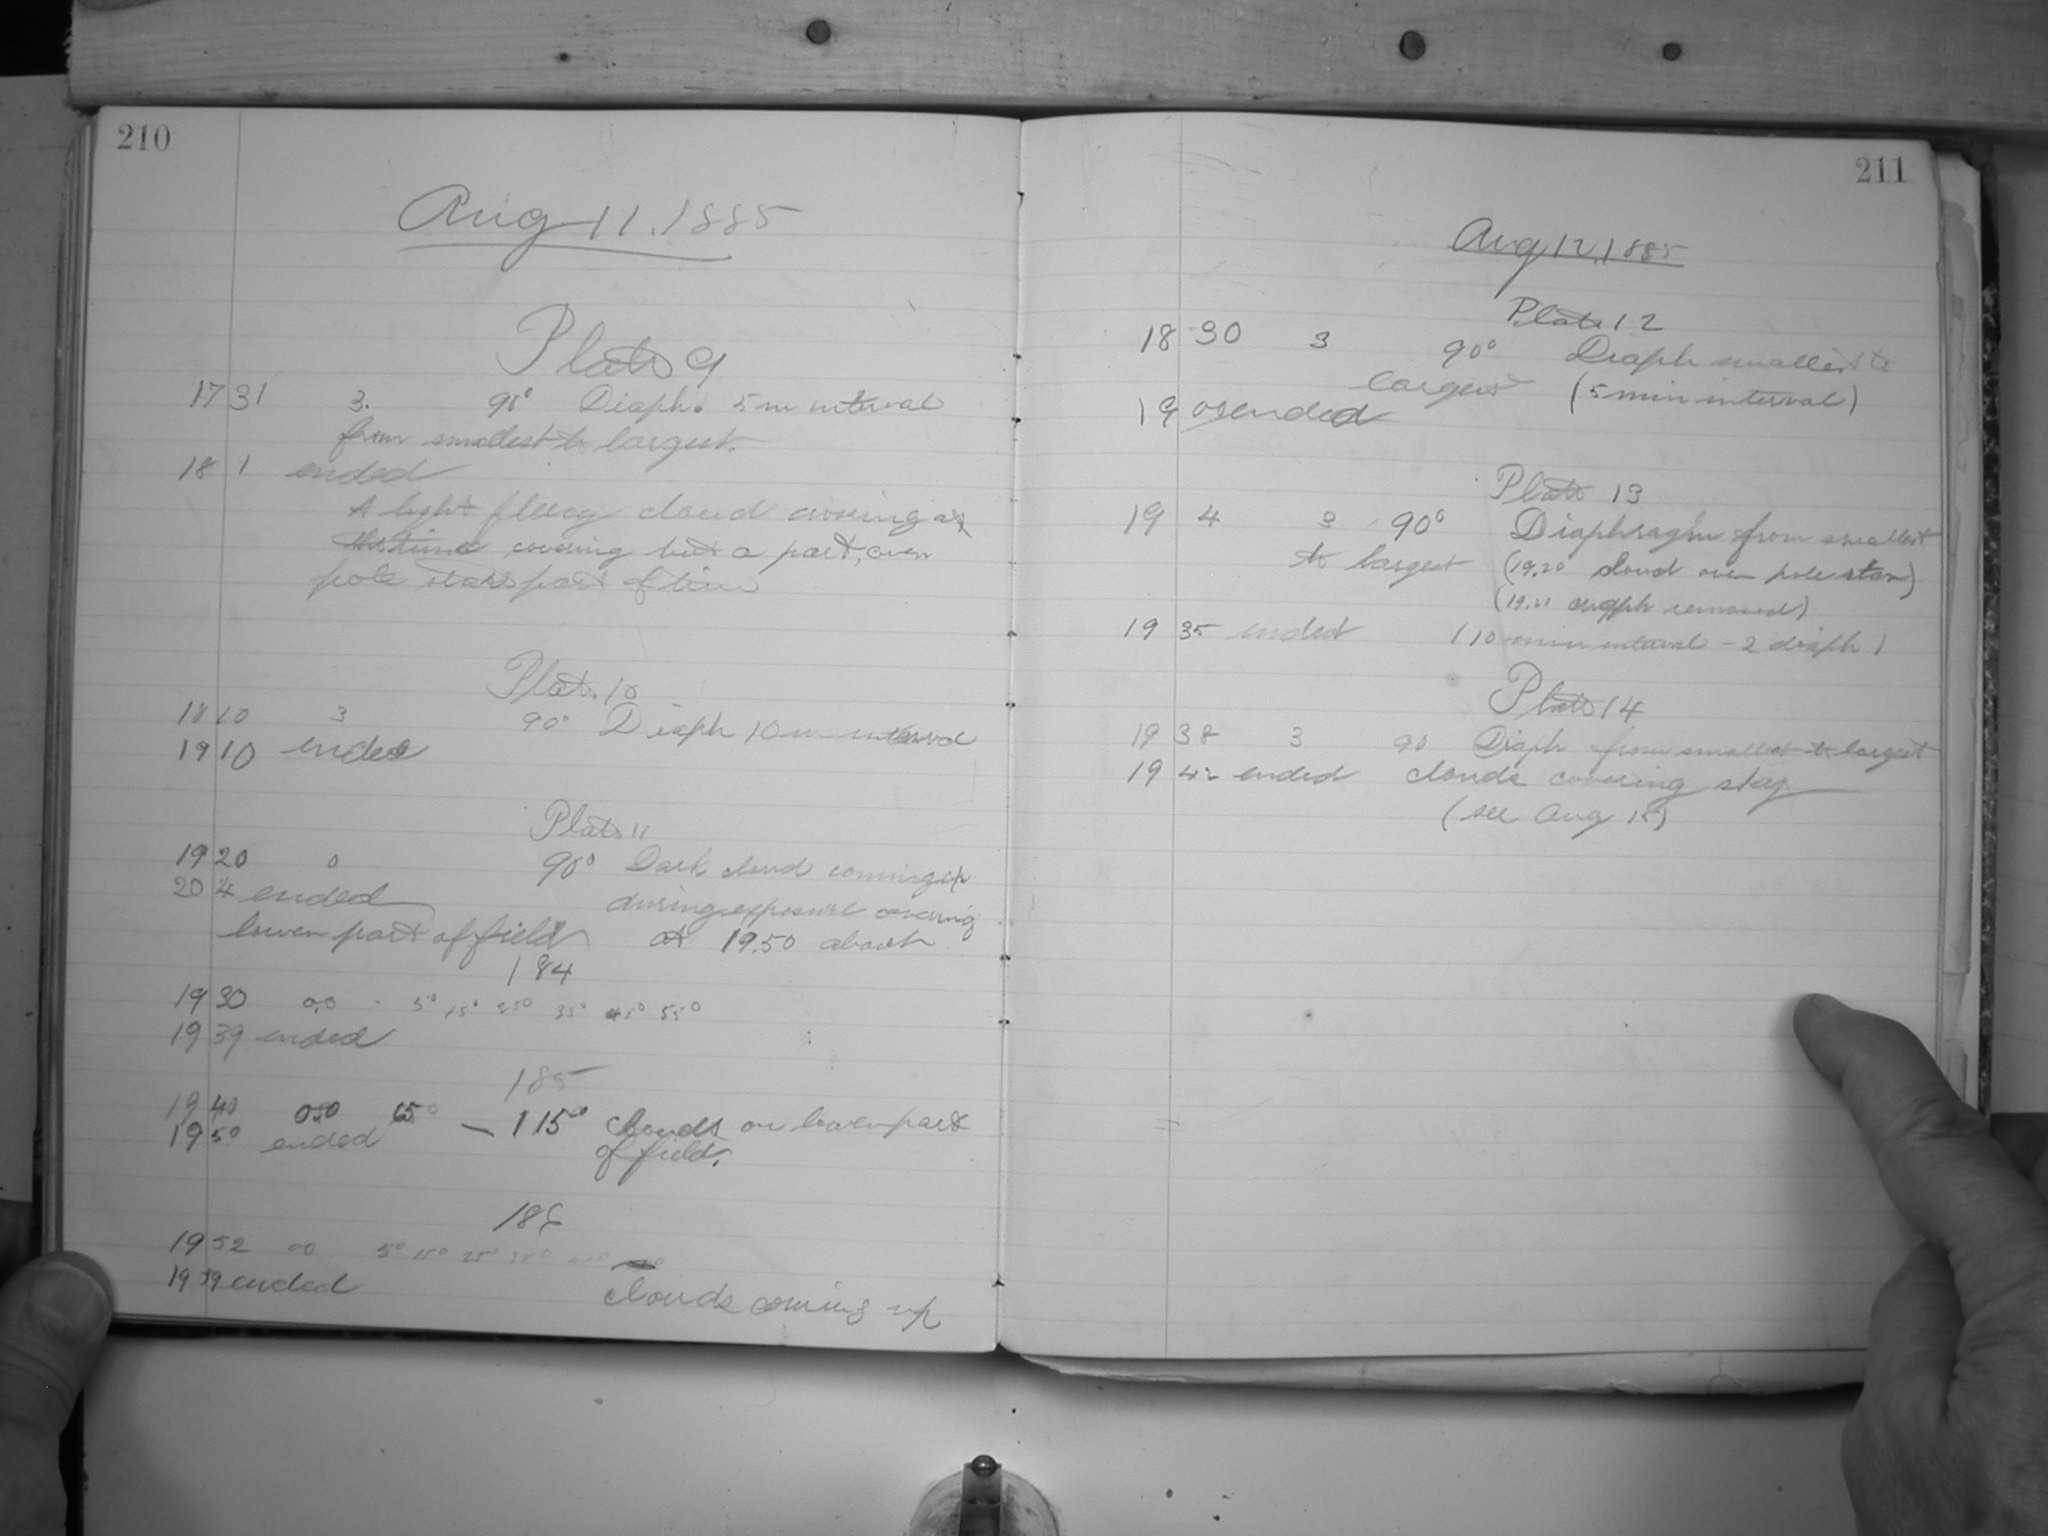 210
Aug 11. 1885
Plate 9
17 31 3. 90° Diaph. 5 m interval
from smallest to largest.
18 1 ended
A light fleecy cloud crossing at
the time covering but a part, over
pole star part of time
Plate 10
18 10 3 90° Diaph 10 m interval
19 10 ended
Plate 11
19 20 0 90° Dark cloud coming up
20 4 ended during exposure covering
lower part of field at 19.50 about
184
19 30 0.0 5° 15° 25° 35° 45° 55°
19 39 ended
185
19 40 0.0 65° — 115° clouds on lower part
19 50 ended of field.
186
19 52 00 5° 15° 25° 35°
19 59 ended clouds coming up
211
Aug 12, 1885
Plate 12
18 30 3 90° Diaph smallest to
largest (5 min interval)
19 ended
Plate 13
19 4 3 90° Diaphragm from smallest
to largest (19.20 cloud over pole star)
(19.21 removed)
19 35 ended (10 min interval - 2 diaph)
Plate 14
19 38 3 90 Diaph from smallest to largest
19 42 ended clouds covering sky
(see Aug 15)